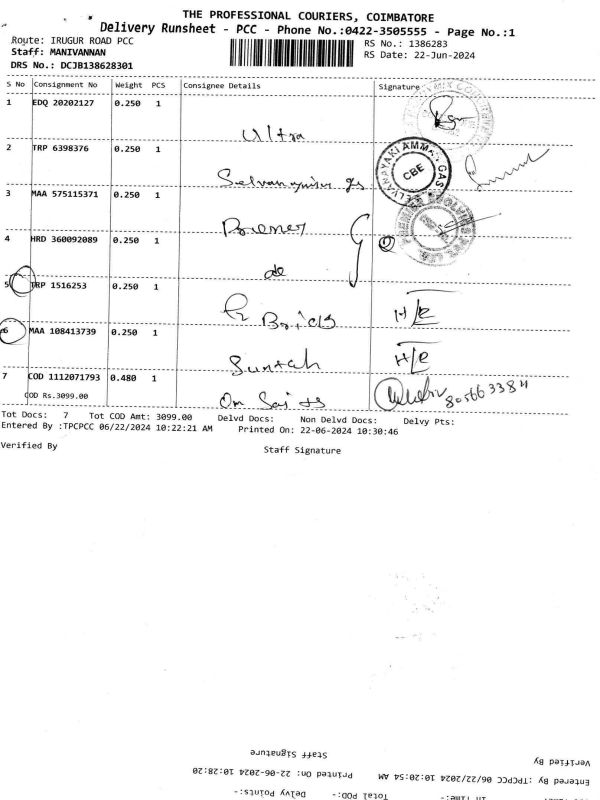 THE PROFESSIONAL COURIERS, COIMBATORE
Delivery Runsheet - PCC - Phone No.:0422-3505555 - Page No.:1
Route: IRUGUR ROAD PCC
RS No.: 1386283
Staff: MANIVANNAN
RS Date: 22-Jun-2024
DRS No.: DCJB138628301
S No Consignment No Weight PCS Consignee Details Signature
1 EDQ 20202127 0.250 1
Ultra
2 TRP 6398376 0.250 1
SELVANAYAKI AMMAN GAS
CBE
3 MAA 575115371 0.250 1
4 HRD 360092089 0.250 1
de
5 TRP 1516253 0.250 1
Bricks
H/R
6 MAA 108413739 0.250 1
H/R
7 COD 1112071793 0.480 1
COD Rs.3099.00
Om Sai
Tot Docs: 7 Tot COD Amt: 3099.00 Delvd Docs: Non Delvd Docs: Delvy Pts:
Entered By :TPCPCC 06/22/2024 10:22:21 AM Printed On: 22-06-2024 10:30:46
Verified By
Staff Signature
Staff Signature
Verified By
Entered By :TPCPCC 06/22/2024 10:20:54 AM Printed On: 22-06-2024 10:28:20
Total POD:- Delvy Points:-